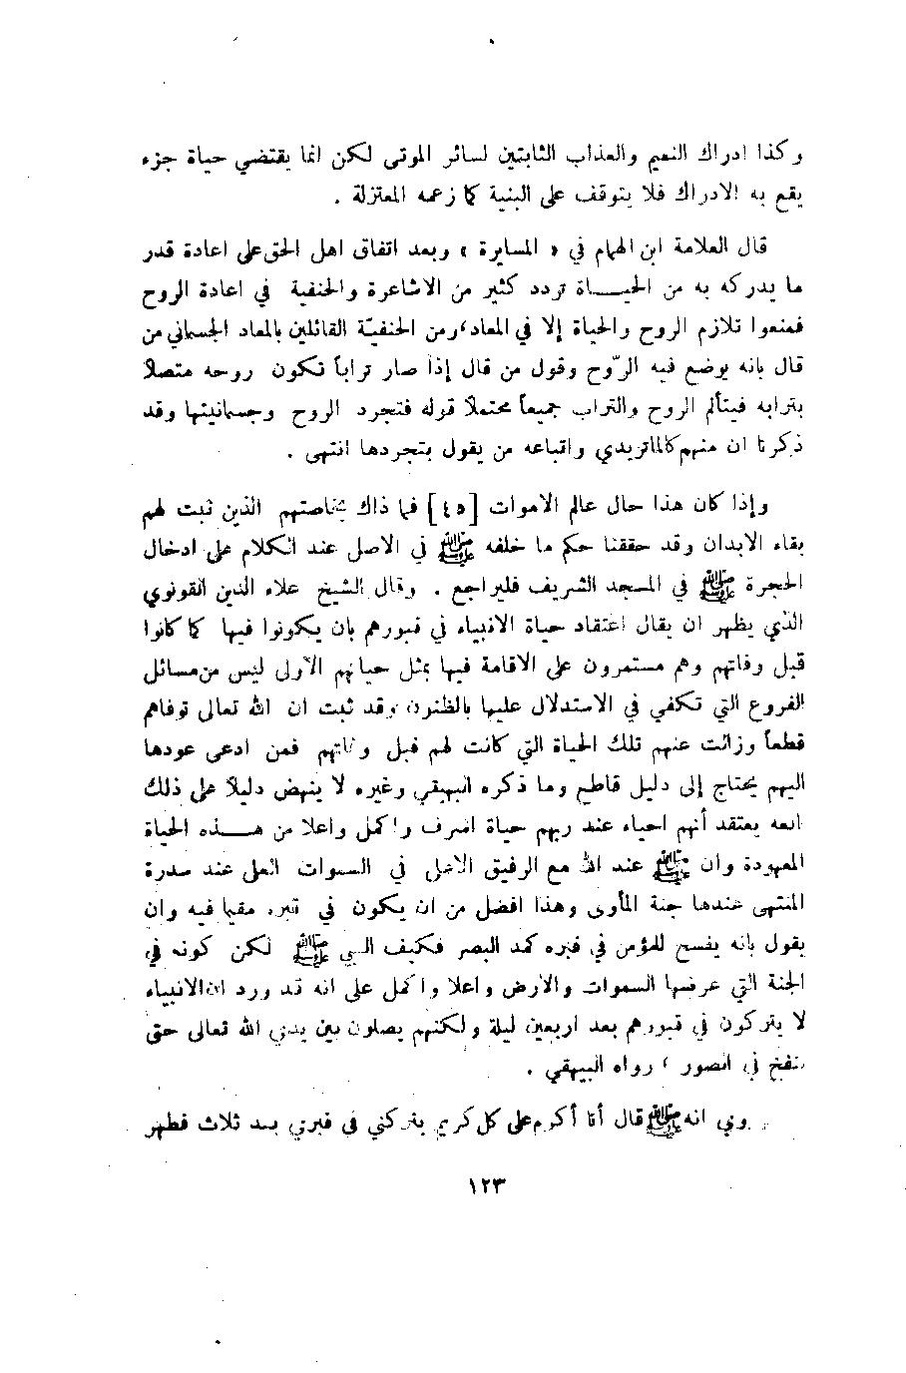 وكذا ادراك النعيم والعذاب الثابتين لسائر الموتى لكن انما يقتضي حياة جزء
يقع به الادراك فلا يتوقف على البنية كما زعمه المعتزلة .
قال العلامة ابن الهمام في « المسايرة » وبعد اتفاق اهل الحق على اعادة قدر
ما يدركه به من الحيـــاة تردد كثير من الاشاعرة والحنفية في اعادة الروح
فمنعوا تلازم الروح والحياة إلا في المعاد، ومن الحنفيّة القائلين بالمعاد الجسماني من
قال بانه يوضع فيه الرّوح وقول من قال إذا صار تراباً تكون روحه متصلاً
بترابه فيتألم الروح والتراب جميعاً محتملاً قوله فتجرد الروح وجسمانيتها وقد
ذكرنا ان منهم كالماتريدي واتباعه من يقول بتجردها انتهى .
وإذا كان هذا حال عالم الاموات [٤٥] فما ذاك بخاصتهم الذين ثبت لهم
بقاء الابدان وقد حققنا حكم ما خلفه ﷺ في الاصل عند الكلام على ادخال
الحجرة ﷺ في المسجد الشريف فليراجع . وقال الشيخ علاء الدين القونوي
الذي يظهر ان يقال اعتقاد حياة الانبياء في قبورهم بان يكونوا فيها كما كانوا
قبل وفاتهم وهم مستمرون على الاقامة فيها بمثل حياتهم الأولى ليس من مسائل
الفروع التي تكفي في الاستدلال عليها بالظنون وقد ثبت ان الله تعالى توفاهم
قطعاً وزالت عنهم تلك الحياة التي كانت لهم قبل وفاتهم فمن ادعى عودها
اليهم يحتاج إلى دليل قاطع وما ذكره البيهقي وغيره لا ينهض دليلاً على ذلك
يعتقد أنهم احياء عند ربهم حياة اشرف واكمل واعلا من هـــذه الحياة
المعهودة وان ﷺ عند الله مع الرفيق الاعلى في السموات العلى عند سدرة
المنتهى عندها جنة المأوى وهذا افضل من ان يكون في قبره مقيما فيه وان
يقول بانه يفسح للمؤمن في قبره كمد البصر فكيف النبي ﷺ لكن كونه في
الجنة التي عرضها السموات والارض واعلا واكمل على انه قد ورد ان الانبياء
لا يتركون في قبورهم بعد اربعين ليلة ولكنهم يصلون بين يدي الله تعالى حتى
ينفخ في الصور ، رواه البيهقي .
وفي انه ﷺ قال أنا أكرم على كل كريم يتركني في قبري بعد ثلاث فظهر
١٢٣